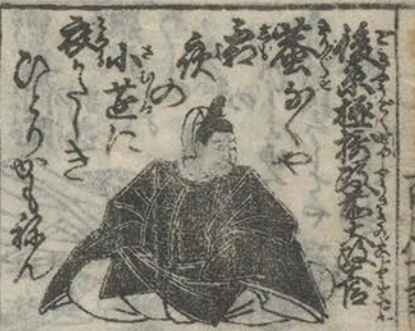 後京極摂政前太政大臣
蛬なくや
霜
夜の
小莚に
衣かたしき
ひとりかもねん